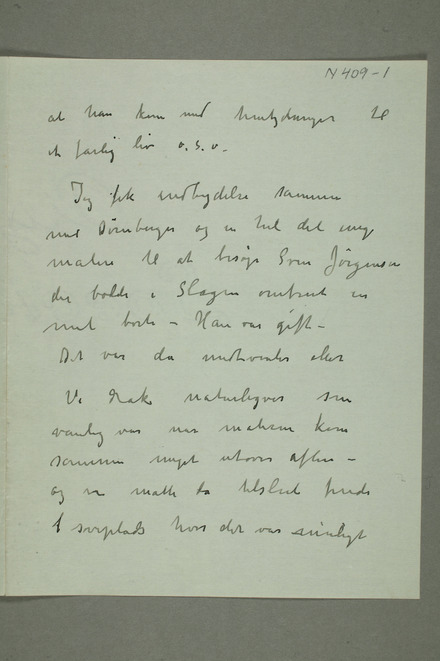 N 409-1
at han kom med hentydninger til
et farlig liv o.s.v.
Jeg fik indbydelse sammen
med Dørnberger og en hel del unge
malere til at besøge Sven Jörgensen
der bodde i Slagen omtrent en
mil borte – Han var gift –
Det var da midtvinter eller
Vi drak naturligvis som
vanlig var når malerne kom
sammen meget utover aften –
og vi måtte da tilslut finde
soveplads hvor det var muligt